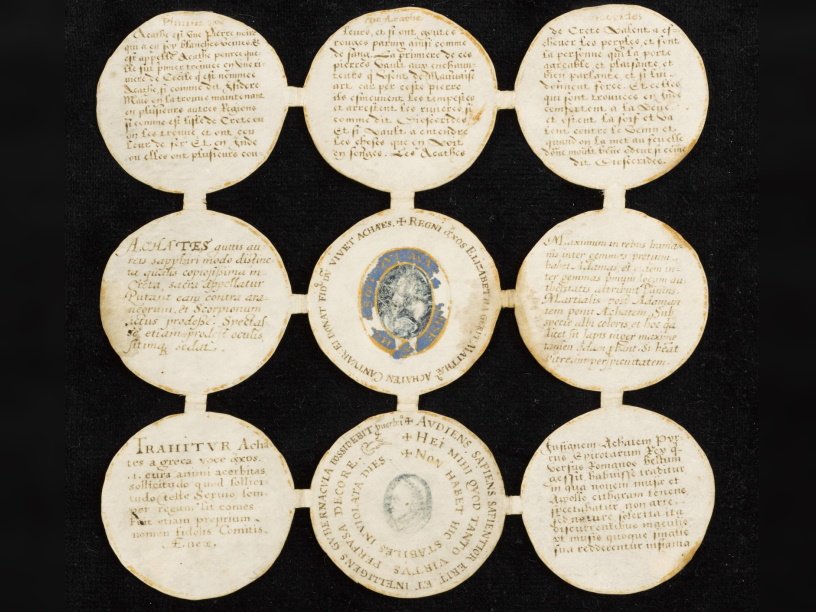 Acathe est une Pierre noire
qui a en soy blanches veines Et
est appellé Acathe pource que
elle fut premier trouvée en une ri-
viere de Cecile q̃ est nommée
Acathe si comme dit Isidere
Mais on la trouve maintenant
en plusieurs autres Regions
si comme est l'isle de Crete ou
on les trouve, et ont cou-
leur de fer Et en Inde
ou elles ont plusieurs cou-
leurs, et si ont gouttes
rouges parmy ainsi comme
de sang. La premiere de ces
pierres Vault aux enchan-
teurs q̃ Usent de Mauvaise
art car par ceste pierre
ilz esmeuvent les tempestes
et arrestent les rivieres si
comme dit
Et si Vault a entendre
les choses que on Voit
en songes. Les Acathes
de Crete Valent a es-
chever les perylez et font
la personne qui la porte
agreable et plaisante et
bien parlante et si luy
donnent force. Et celles
qui sont trouvees en Inde
confortent a la Veue
et
lent contre le Venin et
quand on la met au feu elle
donne moult bone odeur si come
dit
ACHATES guttis au-
reis sapphiri modo distinc-
ta qualis copiosissima in
Creta, sacra appellatur
Putant eam contra ara-
neorum et Scorpionum
ictus prodesse. Spectas-
se etiam prodest oculis
sitimq̃ sedat.
✢ REGNI Q̃XOS ELIZABETHA GERIS MATTHÆ ACHATEN CANTUAR: ET DONAT FID⁹ DŪ VIVET ACHATES.
Maximum in rebus huma-
nis inter gemmas pretium
habet Adamas et item in-
ter gemmas primum locum au-
thoritatis attribuit Plinius.
Martialis post Adaman-
tem ponit Achatem. Sub
specie albi coloris et hoc qa
licet sit lapis niger maxime
tamen
vitreant perspicuitatem
TRAHITVR Acha-
tes a greca voce q̃xos.
i. cura animi acerbitas
sollicitudo quod sollici-
tudo (teste Servio) sem-
per regum sit comes
Fuit etiam proprium
nomen fidelis Comitis
Æneæ.
✢ AVDIENS SAPIENS SAPIENTIOR ERIT ET INTELLIGENS GVBERNACVLA POSSIDEBIT proverb:
✢ HEI MIHI QVOD TANTO VIRTVS PERFVSA DECORE,
✢ NON HABET HIC STABILES INVIOLATA DIES.
Insignem Achatem Pyr-
rus Epirotarum Rex q̃
versus Romanos bellum
gessit habuisse traditur
in qua novem musæ et
Apollo citharam tenens
spectabatur non arte,
sed nature solertia ita
discurrentibus maculis
ut musis quoque singulis
sua redderentur insignia